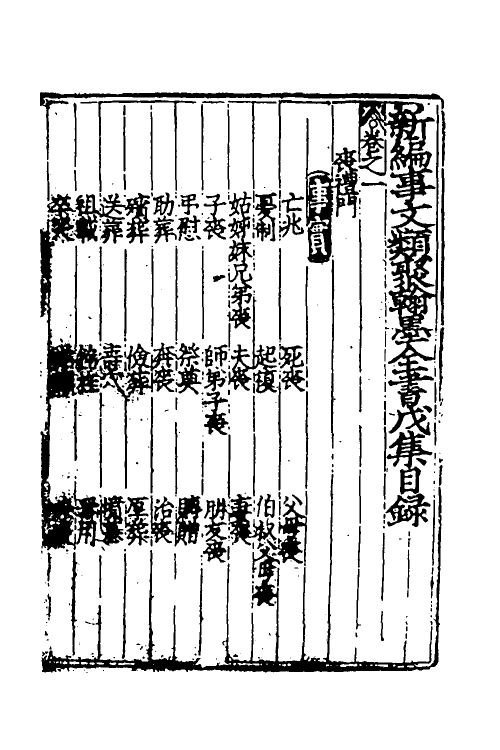 新編事文類聚翰墨全書戊集目録
卷之一
喪禮門
事實
亡兆　死喪　父母喪
憂制　起復　伯叔父母喪
姑姊妹兄弟喪　夫喪　妻喪
子喪　師弟子喪　朋友喪
弔慰　祭奠　賻贈
助葬　奔喪　治喪
殯葬　儉葬　厚葬
送葬
祖載